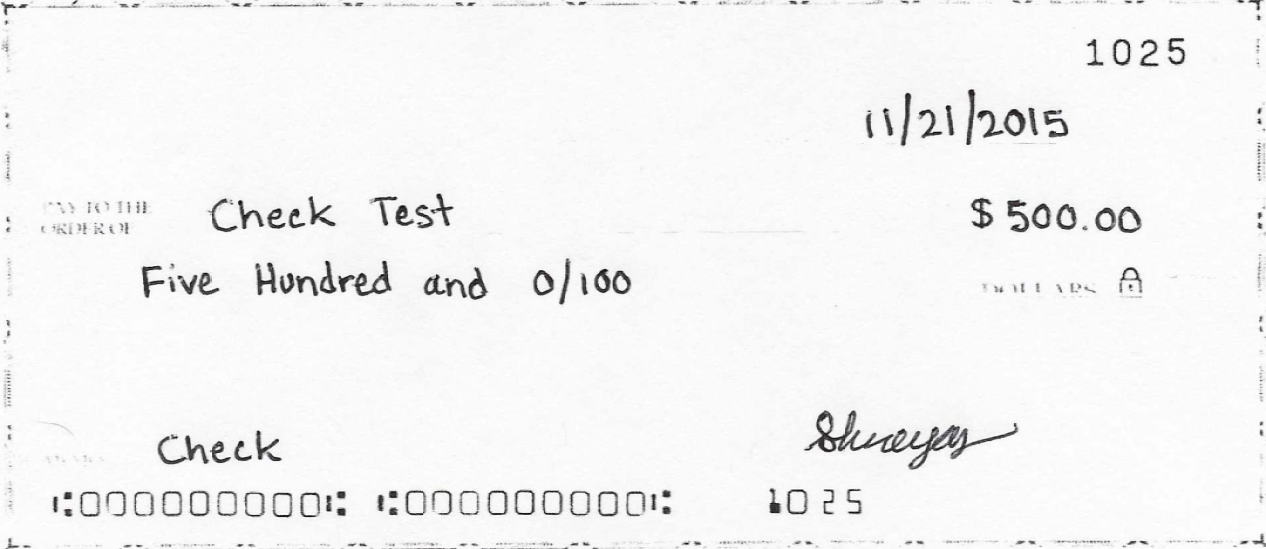 1025
11/21/2015
PAY TO THE
ORDER OF
Check Test
$ 500.00
Five Hundred and 0/100
DOLLARS
Check
Shreyas
⑆000000000⑆ ⑆000000000⑆ 1025